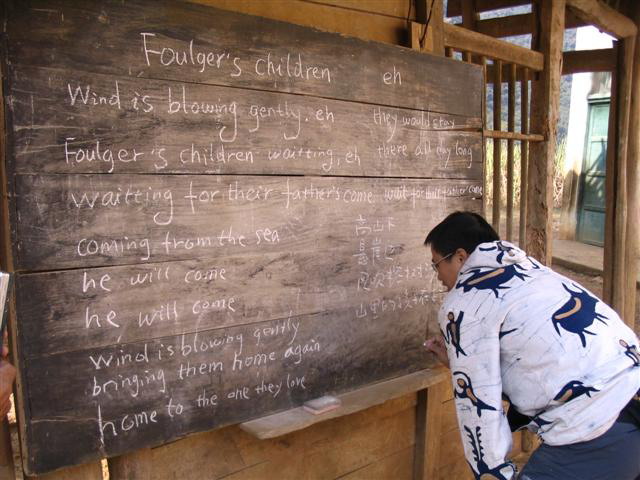 Foulger's children eh
Wind is blowing gently. eh
they would stay
Foulger's children waitting, eh
there all day long
waitting for their father's come
wait for their father come
coming from the sea
he will come
he will come
wind is blowing gently
bringing them home again
home to the one they love
高山下
崖边
风吹轻轻
山里的孩子